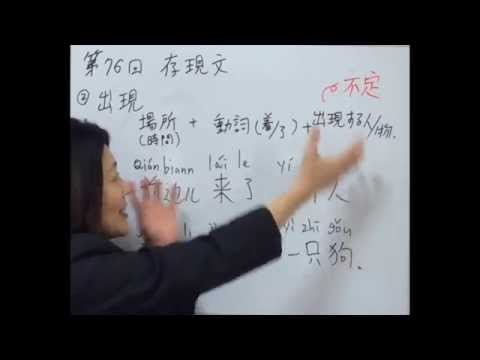 第76回 存現文
② 出現 不定
場所 + 動詞(着/了) + 出現する人/物.
(時間)
Qián biānr lái le yí
前边儿 来 了 人
yì zhī gǒu
一 只 狗.